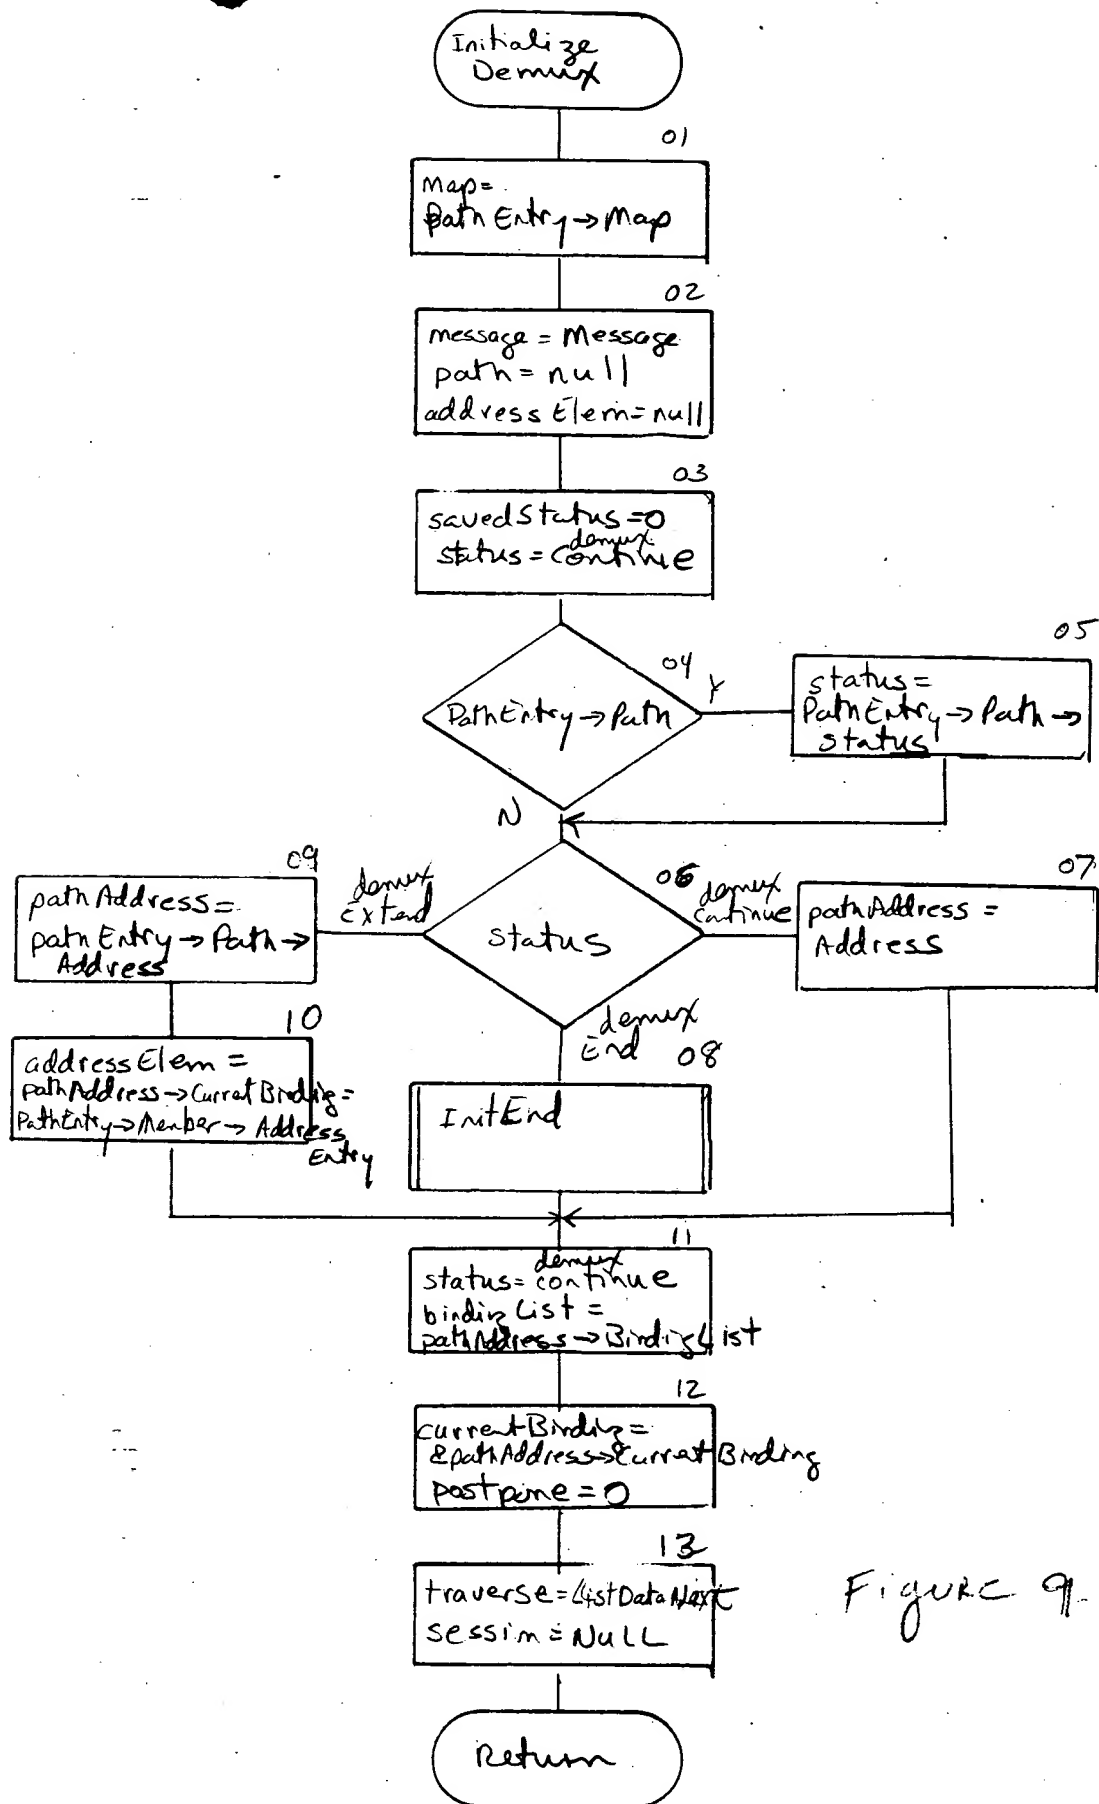 Initialize
Demux
01
Map=
PathEntry→Map
02
message = Message
path = null
addressElem=null
03
savedStatus=0
demux
status=Continue
04
PathEntry→Path
Y
05
status=
PathEntry→Path→
status
N
06
status
demux
Extend
demux
continue
demux
End
09
pathAddress=
pathEntry→Path→
Address
07
pathAddress=
Address
10
addressElem=
pathAddress→CurrentBinding=
PathEntry→Member→Address
Entry
08
InitEnd
11
demux
status=continue
bindingList=
pathAddress→BindingList
12
currentBinding=
&pathAddress→CurrentBinding
postpone=0
13
traverse=ListDataNext
session=NULL
Return
FIGURE 9